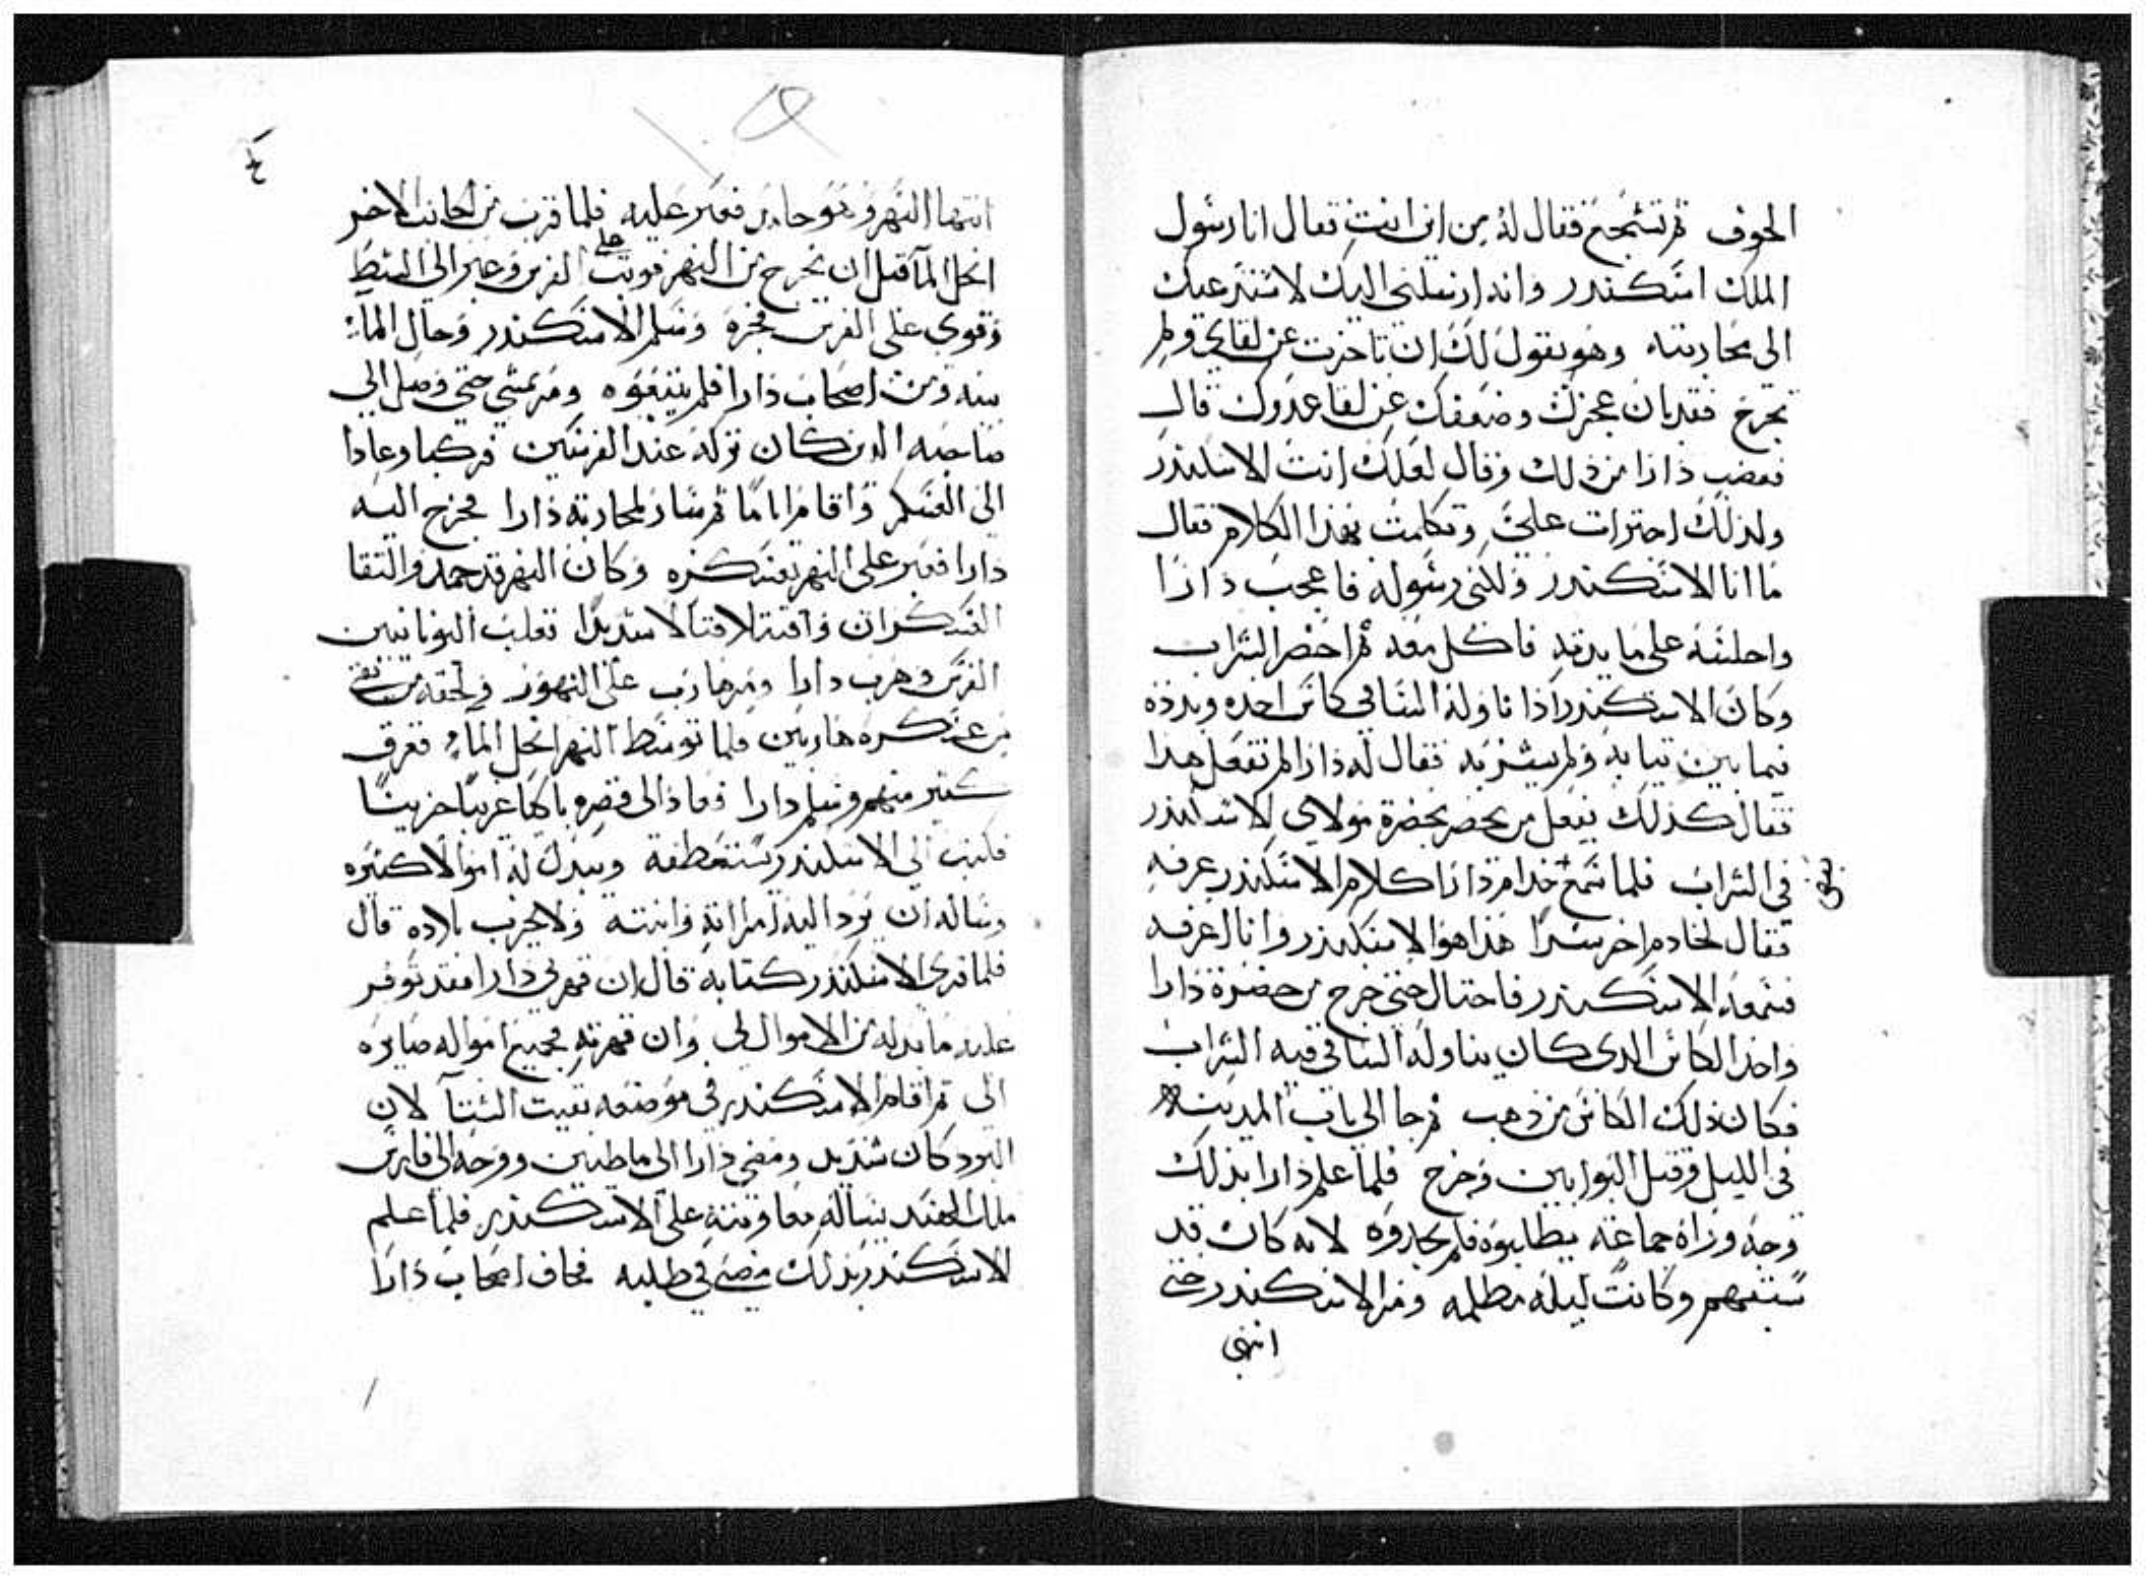 الخوف ثم تشجع فقال له من اين انت فقال انا رسول
الملك اسكندر وانه ارسلني اليك لاستدعيك
الى محاربته وهو يقول لك ان تاخرت عن لقاي ولم
تخرج فقد بان عجزك وضعفك عن لقا عدوك قال
فغضب دارا من ذلك وقال لعلك انت الاسكندر
ولذلك اجترات علي وتكلمت بهذا الكلام فقال
ما انا الاسكندر ولكني رسوله فاعجب دارا
واجلسه على مايدته فاكل معه ثم احضر الشراب
وكان الاسكندر اذا ناوله الساقي كاس اخده وبدده
فيما بين ثيابه ولم يشربه فقال له دارا لم تفعل هدا
فقال كذلك يفعل من يحضر بحضرة مولاي الاسكندر
في الشراب فلما سمع خدام دارا كلام الاسكندر عرفه
فقال لخادم اخر سرا هذا هو الاسكندر وانا اعرفه
فسمعه الاسكندر فاحتال حتى خرج من حضرة دارا
واخد الكاس الدى كان يناوله الساقي فيه الشراب
فكان ذلك الكاس من ذهب ثم جا الى باب المدينه
في الليل وقتل البوابين وخرج فلما علم دارا بذلك
وجه وراه جماعة يطلبوه فلم يجدوه لانه كان قد
سبقهم وكانت ليلة مظلمه ومر الاسكندر حتى
انتهى
انتها النهر وهو جامد فعبر عليه فلما قرب من الجانب الاخر
انحل المآ قبل ان يخرج من النهر فوثب على الفرس وعبر الى الشط
وقوي على الفرس فجره وسلم الاسكندر وحال الماء
بينه وبين اصحاب دارا فلم يتبعوه ومر يمشي حتى وصل الى
صاحبه الدى كان تركه عند الفرسين فركبا وعادا
الى العسكر واقام اياما ثم سار لمحاربة دارا فخرج اليه
دارا فعبر على النهر بعسكره وكان النهر قد جمد والتقا
العسكران واقتتلا قتالا شديدا فغلب اليونانيين
الفرس وهرب دارا ومر هارب على النهر ولحقه من بقي
من عسكره هاربين فلما توسط النهر انحل الماء فغرق
كتير منهم وسلم دارا وعاد الى قصره باكيا حزينا
فكتب الى الاسكندر يستعطفه ويبدل له اموالا كتيره
وساله ان يرد اليه امراته وابنته ولا يخرب بلاده قال
فلما قرى الاسكندر كتابه قال ان قهرني دارا فقد توفر
عليه ما بدله من الاموال لي وان قهرته فجميع امواله صايره
الى ثم اقام الاسكندر في موضعه بقيت الشتآ لان
البرد كان شديد ومضى دارا الى ووجه الى فارس
ملك الهند يساله معاونته على الاسكندر فلما علم
الاسكندر بذلك مضى في طلبه فخاف اصحاب دارا